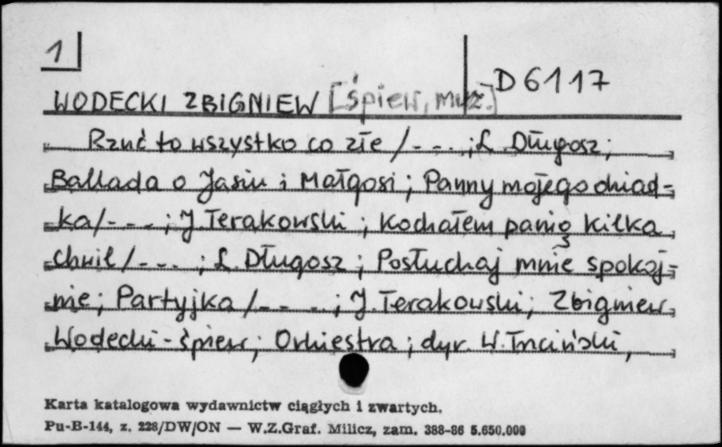 1
D 6117
WODECKI ZBIGNIEW [śpiew, muz.]
Rzuć to wszystko co złe /- - - ; L. Długosz;
Ballada o Jasiu i Małgosi; Panny mojego dziad-
ka/- - - ; J. Terakowski; Kochałem panią kilka
chwil /- - - ; L. Długosz; Posłuchaj mnie spokoj-
nie; Partyjka /- - - ; J. Terakowski; Zbigniew
Wodecki - śpiew; Orkiestra; dyr. W. Trzciński,
Karta katalogowa wydawnictw ciągłych i zwartych.
Pu-B-144, z. 228/DW/ON — W.Z.Graf. Milicz, zam. 388-86 5.650.000